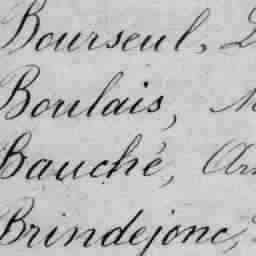 Bourseul,
Boulais,
Bauché,
Brindejonc,